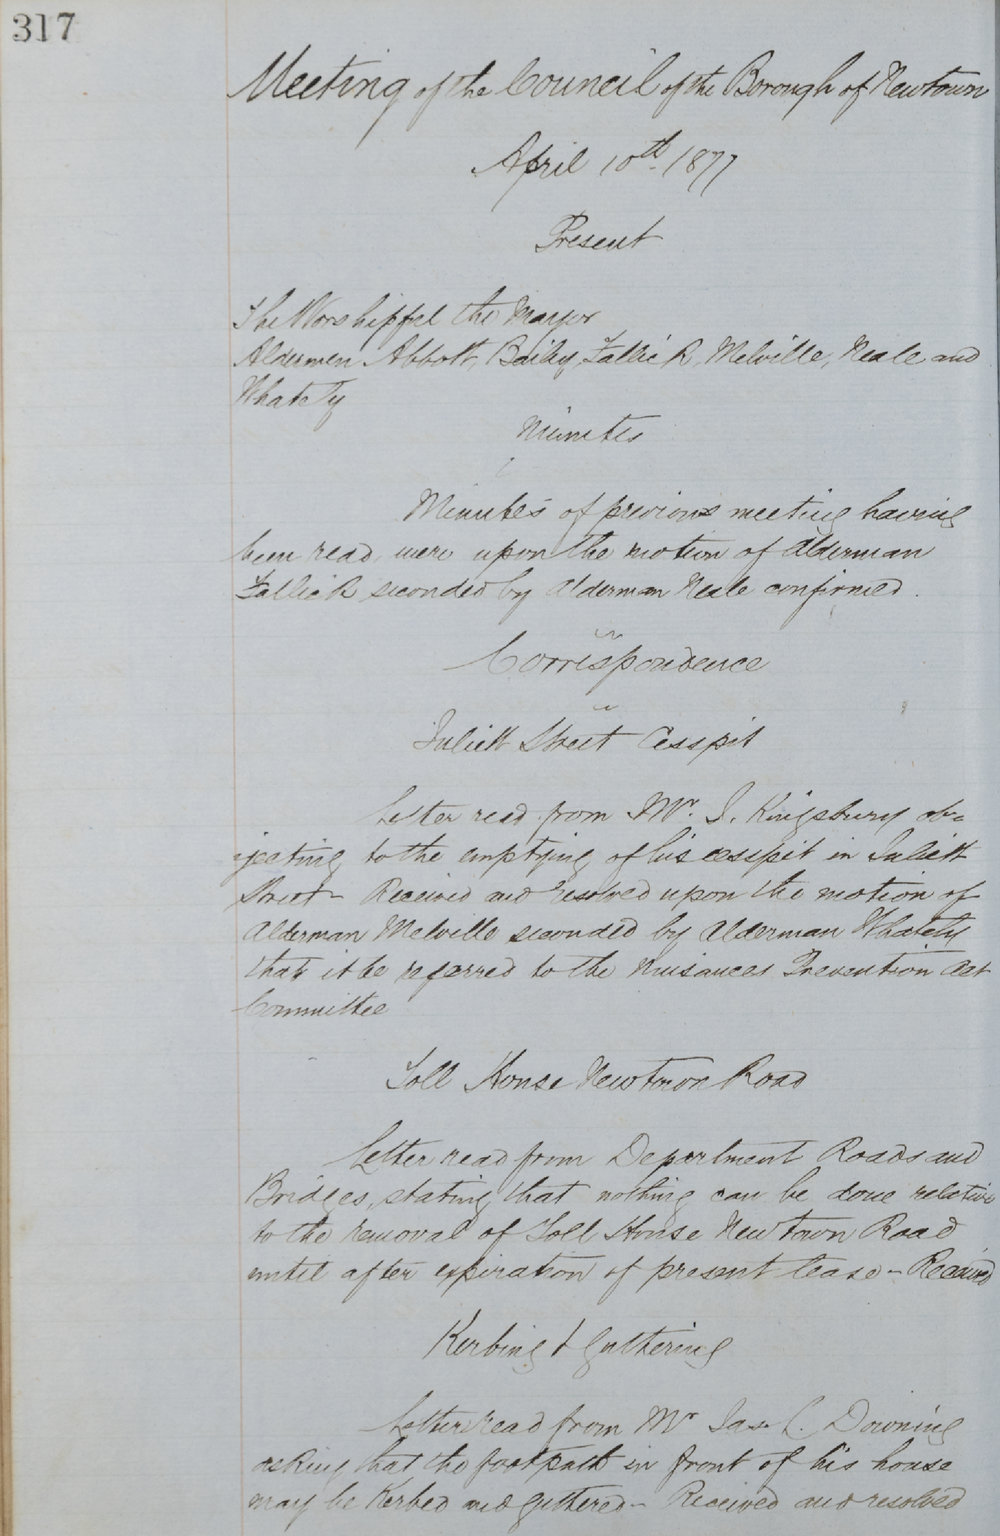 317
Meeting of the Council of the Borough of Newtown
April 10th 1877
Present
The Worshipful the Mayor
Aldermen Abbott, Baily, Fallick, Melville, Neale and
Whately
Minutes
Minutes of previous meeting having
been read were upon the motion of Alderman
Fallick seconded by Alderman Neale confirmed.
Correspondence
Juliett Street Cesspit
Letter read from Mr. J. Kingsbury ob=
jecting to the emptying of his cesspit in Juliett
Street - Received and resolved upon the motion of
Alderman Melville seconded by Alderman Whately
that it be referred to the Nuisances Prevention Act
Committee
Toll House Newtown Road
Letter read from Department Roads and
Bridges, stating that nothing can be done relative
to the removal of Toll House Newtown Road
until after expiration of present lease - Received
Kerbing & guttering
Letter read from Mr Jas. C. Downing
asking that the footpath in front of his house
may be Kerbed and guttered - Received and resolved